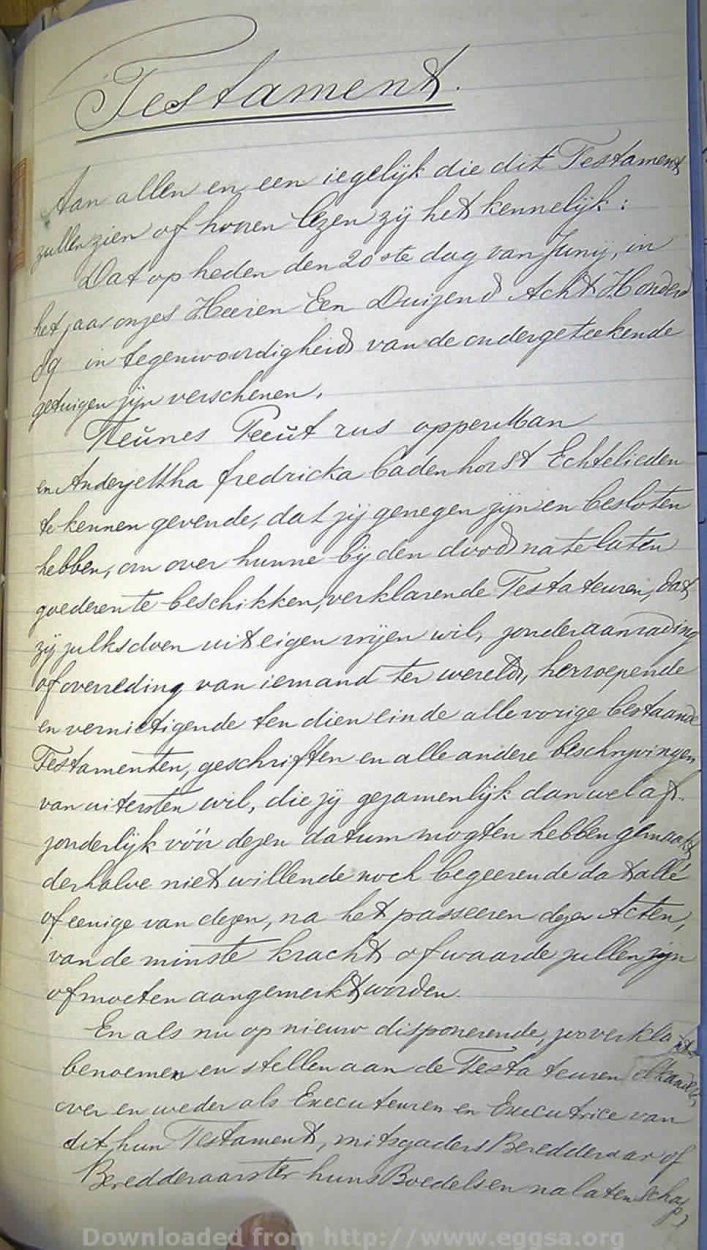 Testament.
Aan allen en een iegelijk die dit Testament
zullen zien of hooren lezen zij het kennelijk:
Dat op heden den 20ste dag van Junij, in
het jaar onzes Heeren Een Duizend Acht Honderd
in tegenwoordigheid van de ondergeteekende
getuigen zijn verschenen.
Teunes Peut rus opperman
en Anderjettha fredricka badenhorst Echtelieden
te kennen gevende, dat zij genegen zijn en besloten
hebben, om over hunne bij den dood na te laten
goederen te beschikken, verklarende Testateuren, dat
zij zulks doen uit eigen vrijen wil, zonder aanrading
of overreding van iemand ter wereld, herroepende
en vernietigende ten dien einde alle vorige bestaande
Testamenten, geschriften en alle andere beschrijvingen
van uitersten wil, die zij gezamenlijk dan wel af-
zonderlijk vóór dezen datum mogten hebben gemaakt
derhalve niet willende noch begeerende dat alle
of eenige van dezen, na het passeeren dezer Acten,
van de minste kracht of waarde zullen zijn
of moeten aangemerkt worden.
En als nu op nieuw disponerende, zoo verkla
benoemen en stellen aan de Testateuren Elkander
over en weder als Executeuren en Executrice van
dit hun Testament, mitsgaders Beredderaar of
Beredderaarster huns Boedels en nalatenschap,
Downloaded from http://www.eggsa.org